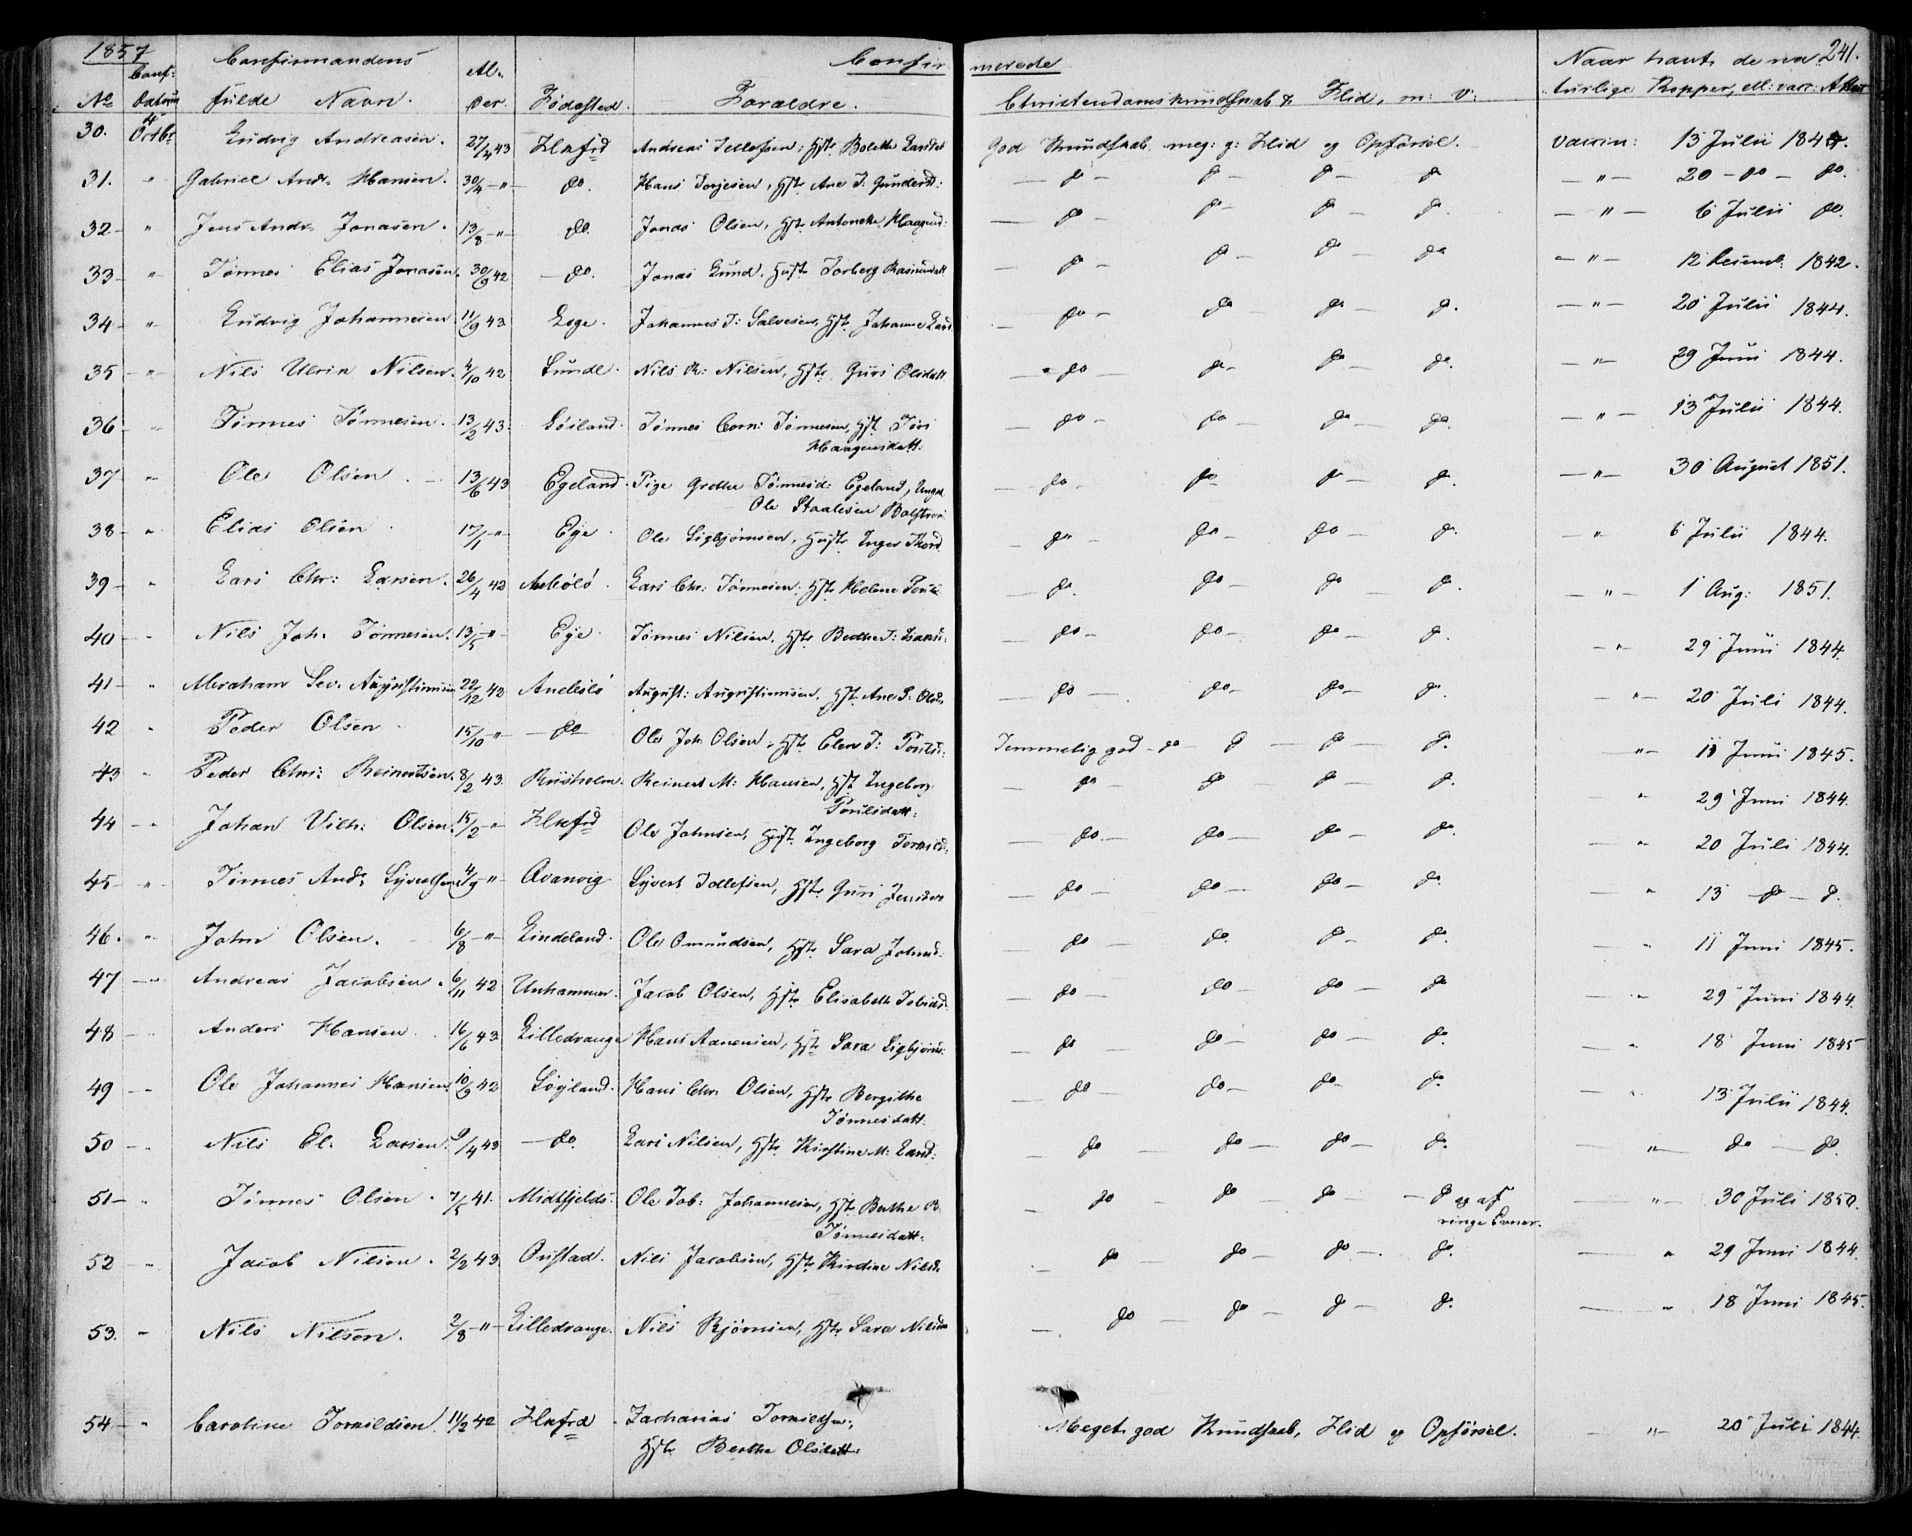 1857 Confirmerede 241.
No Conf: Datum Confirmandens fulde Navn. Alder. Fødested. Forældre. Christendomskundskab & Flid, m: v: Naar havt de naturlige Kopper, ell: vacc: Attest
30. 4 Octbr Ludvig Andreasen. 27/4 43 Flkfrd Andreas Tellefsen, Hstr Bolette Larsdat God Kundskab meg: g: Flid og Opførsel. vaccin: 13 Julii 1844.
31. " Gabriel Andr. Hansen. 30/4 " do. Hans Torjesen, Hstr Ane T. Gundersd: — do — do — do — do — " — 20 — do — do.
32 — " Jens Andr. Jonasen. 13/8 — " — do. Jonas Olsen, Hstr Antonette Haagensd: — do — do — do — do. — " — 6 Julii do.
33 — " Tönnes Elias Jonasen. 30/9 42 — do. Jonas Lund, Hstr Torberg Rasmusdatt — do — do — do — do — " — 12 Decemb. 1842.
34 — " Ludvig Johannesen 11/9 43 Ege. Johannes T: Salvesen, Hstr Johanne Lars — do — do — do — do. — " — 20 Julii 1844.
35 — " Nils Ulrik Nilsen. 4/10 42 Lunde. Nils R: Nilsen, Hstr Guri Olsdatt — do — do — do — do. — " — 29 Juni 1844.
36 — " Tönnes Tönnesen. 13/2 43. Göiland. Tönnes Corn: Tönnesen, Hst. Töri — do — do — do — do. — " — 13 Julii 1844.
Haagensdatt.
37 " Ole Olsen. 13/6 43 Egeland. Pige Grethe Tönnesd: Egeland, Ungk — do — do — do — do. — " — 30 August 1851.
Ole Staalesen
38 — " Elias Olsen 17/1 — " — Eje. Ole Sigbjörnsen, Hstr Inger — do — do — do — do. — " 6 Julii 1844.
39 — " Lars Chr: Larsen. 26/4 42 Anebölö. Lars Chr: Tönnesen, Hstr Helene — do. do — do do — " — 1 Aug: 1851.
40 — " Nils Joh. Tönnesen. 13/5 " — Eje. Tönnes Nilsen, Hstr Berthe T: — do — do — do — do. — " — 29 Juni 1844.
41 — " Abraham Sev. Augustinusen 22/12 42 Anebölö August: Augustinusen, Hstr Ane S. Olsd. — do — do — do — do. — " — 20 Juli 1844.
42 " Peder Olsen 15/10 " — do Ole Joh. Olsen, Hstr Elen T: Temmelig god — do — do — do — do. " — 11 Juni 1845.
43 " Peder Chri: Reinertsen. 8/2 43. Risholm. Reinert M: Hansen, Hst Ingeborg — do — do — do — do. " 29 Juni 1844.
Poulsdatt.
44 — " Johan Vilh: Olsen. 15/2 " Flkfrd Ole Johnsen, Hstr Ingeborg — do — do — do — do. — " 20 Juli 1844.
45 — " Tönnes Andr. Syvertsen 4/9 " — Avanvig Syvert Tollefsen, Hstr Guri Jensdatt — do — do — do — do. — " 13 — do — do.
46. " John Olsen. 6/8 — " — Lindeland. Ole Omundsen, Hstr Sara Johnsd. — do — do. do — do. — " 11 Juni 1845.
47 — " Andreas Jacobsen. 6/11 42 Unhammer. Jacob Olsen, Hstr Elisabeth Tobiasd. — do — do — do — do — " 29 Juni 1844.
48 — " Anders Hansen. 16/6 43 Lilledrange Hans Aanensen, Hstr Sara Sigbjörns. — do — do — do — do. — " 18 Juni 1845
49 — " Ole Johannes Hansen. 10/9 42 Söyland. Hans Chr. Olsen, Hstr Bergithe — do — do — do — do. — " 13 Julii 1844.
Tönnesdatt.
50 — " Nils El. Larsen. 9/4 43 — do. Lars Nilsen, Hstr Kirstine M: Larsd: — do — do — do — do. — " — do — do.
51 — " Tönnes Olsen. 7/5 41. Midtfjelds. Ole Tob: Johannesen, Hstr Berthe B. do — do — do — do og af — " — 30 Juli 1850.
Tönnesdatt. ringe Evner.
52 — " Jacob Nilsen. 2/2 43. Onstad. Nils Jacobsen, Hstr Kirstine Nilsd. — do — do — do — do. — " 29 Juni 1844.
53. " Nils Nilsen. 2/8 — " — Lilledrange. Nils Bjørnsen, Hstr Sara Nilsdatt — do — do — do — do. — " 18 Juni 1845.
54 — " Caroline Torkildsen. 11/2 42 Flkfrd Zacharias Torkildsen, Meget god Kundskab, Flid og Opførsel. — " — 20 Juli 1844.
Hstr Berthe Olsdatt: